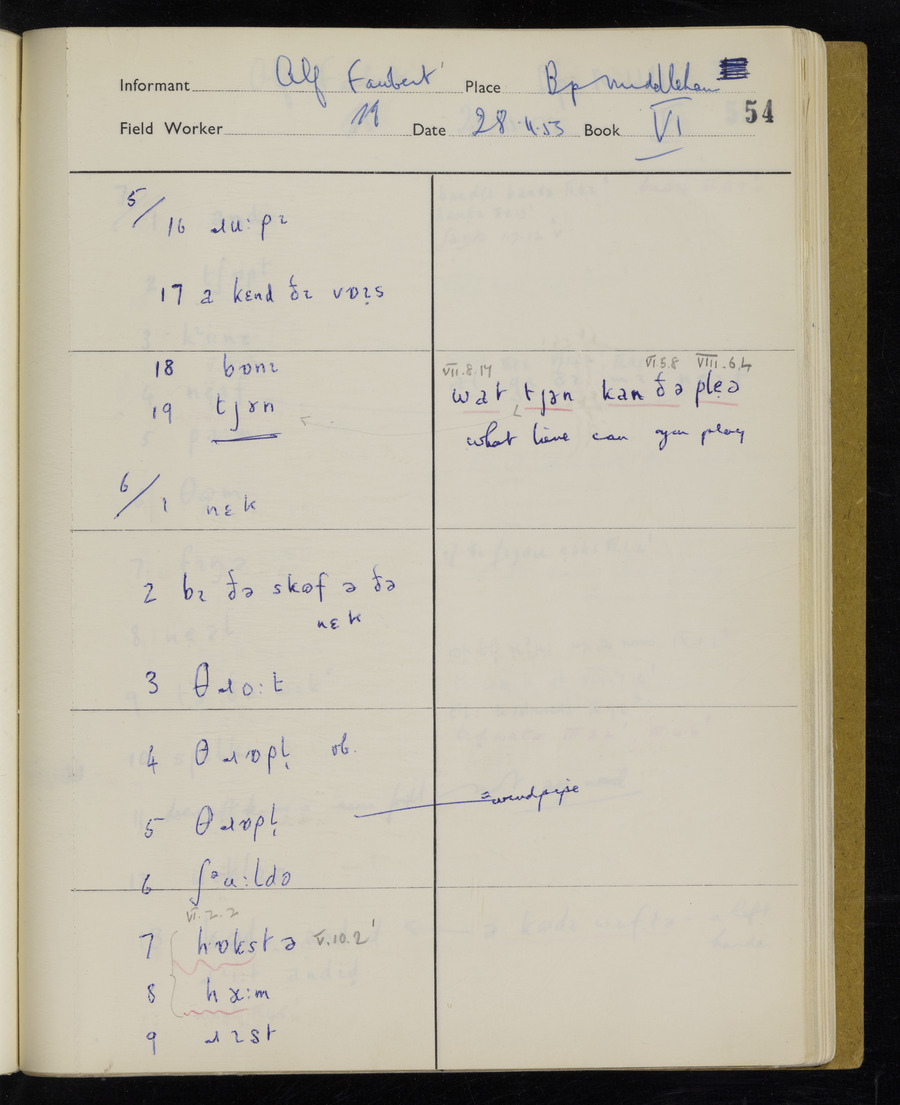 Informant Alf Faubert' Place Bp Middleham
54
Field Worker Date 28.11.53 Book VI
5/16 ɹu:pɪ
17 ə kɛnd ðɪ vɒɪs
18 bɒnɪ
19 tjən
VII.8.14 VI.5.8 VIII.6.4
wat tjən kan ðə pleə
what time can you play
6/1 nɛk
2 bɪ ðə skɒf ə ðə
nɛk
3 θɹo:t
4 θɹɒpl̩ ob.
5 θɹɒpl̩ = windpipe
6 ʃᵊu:ldə
VI.2.2
7 hɒkstə V.10.2'
8 hɪ:m
9 ɹɪst